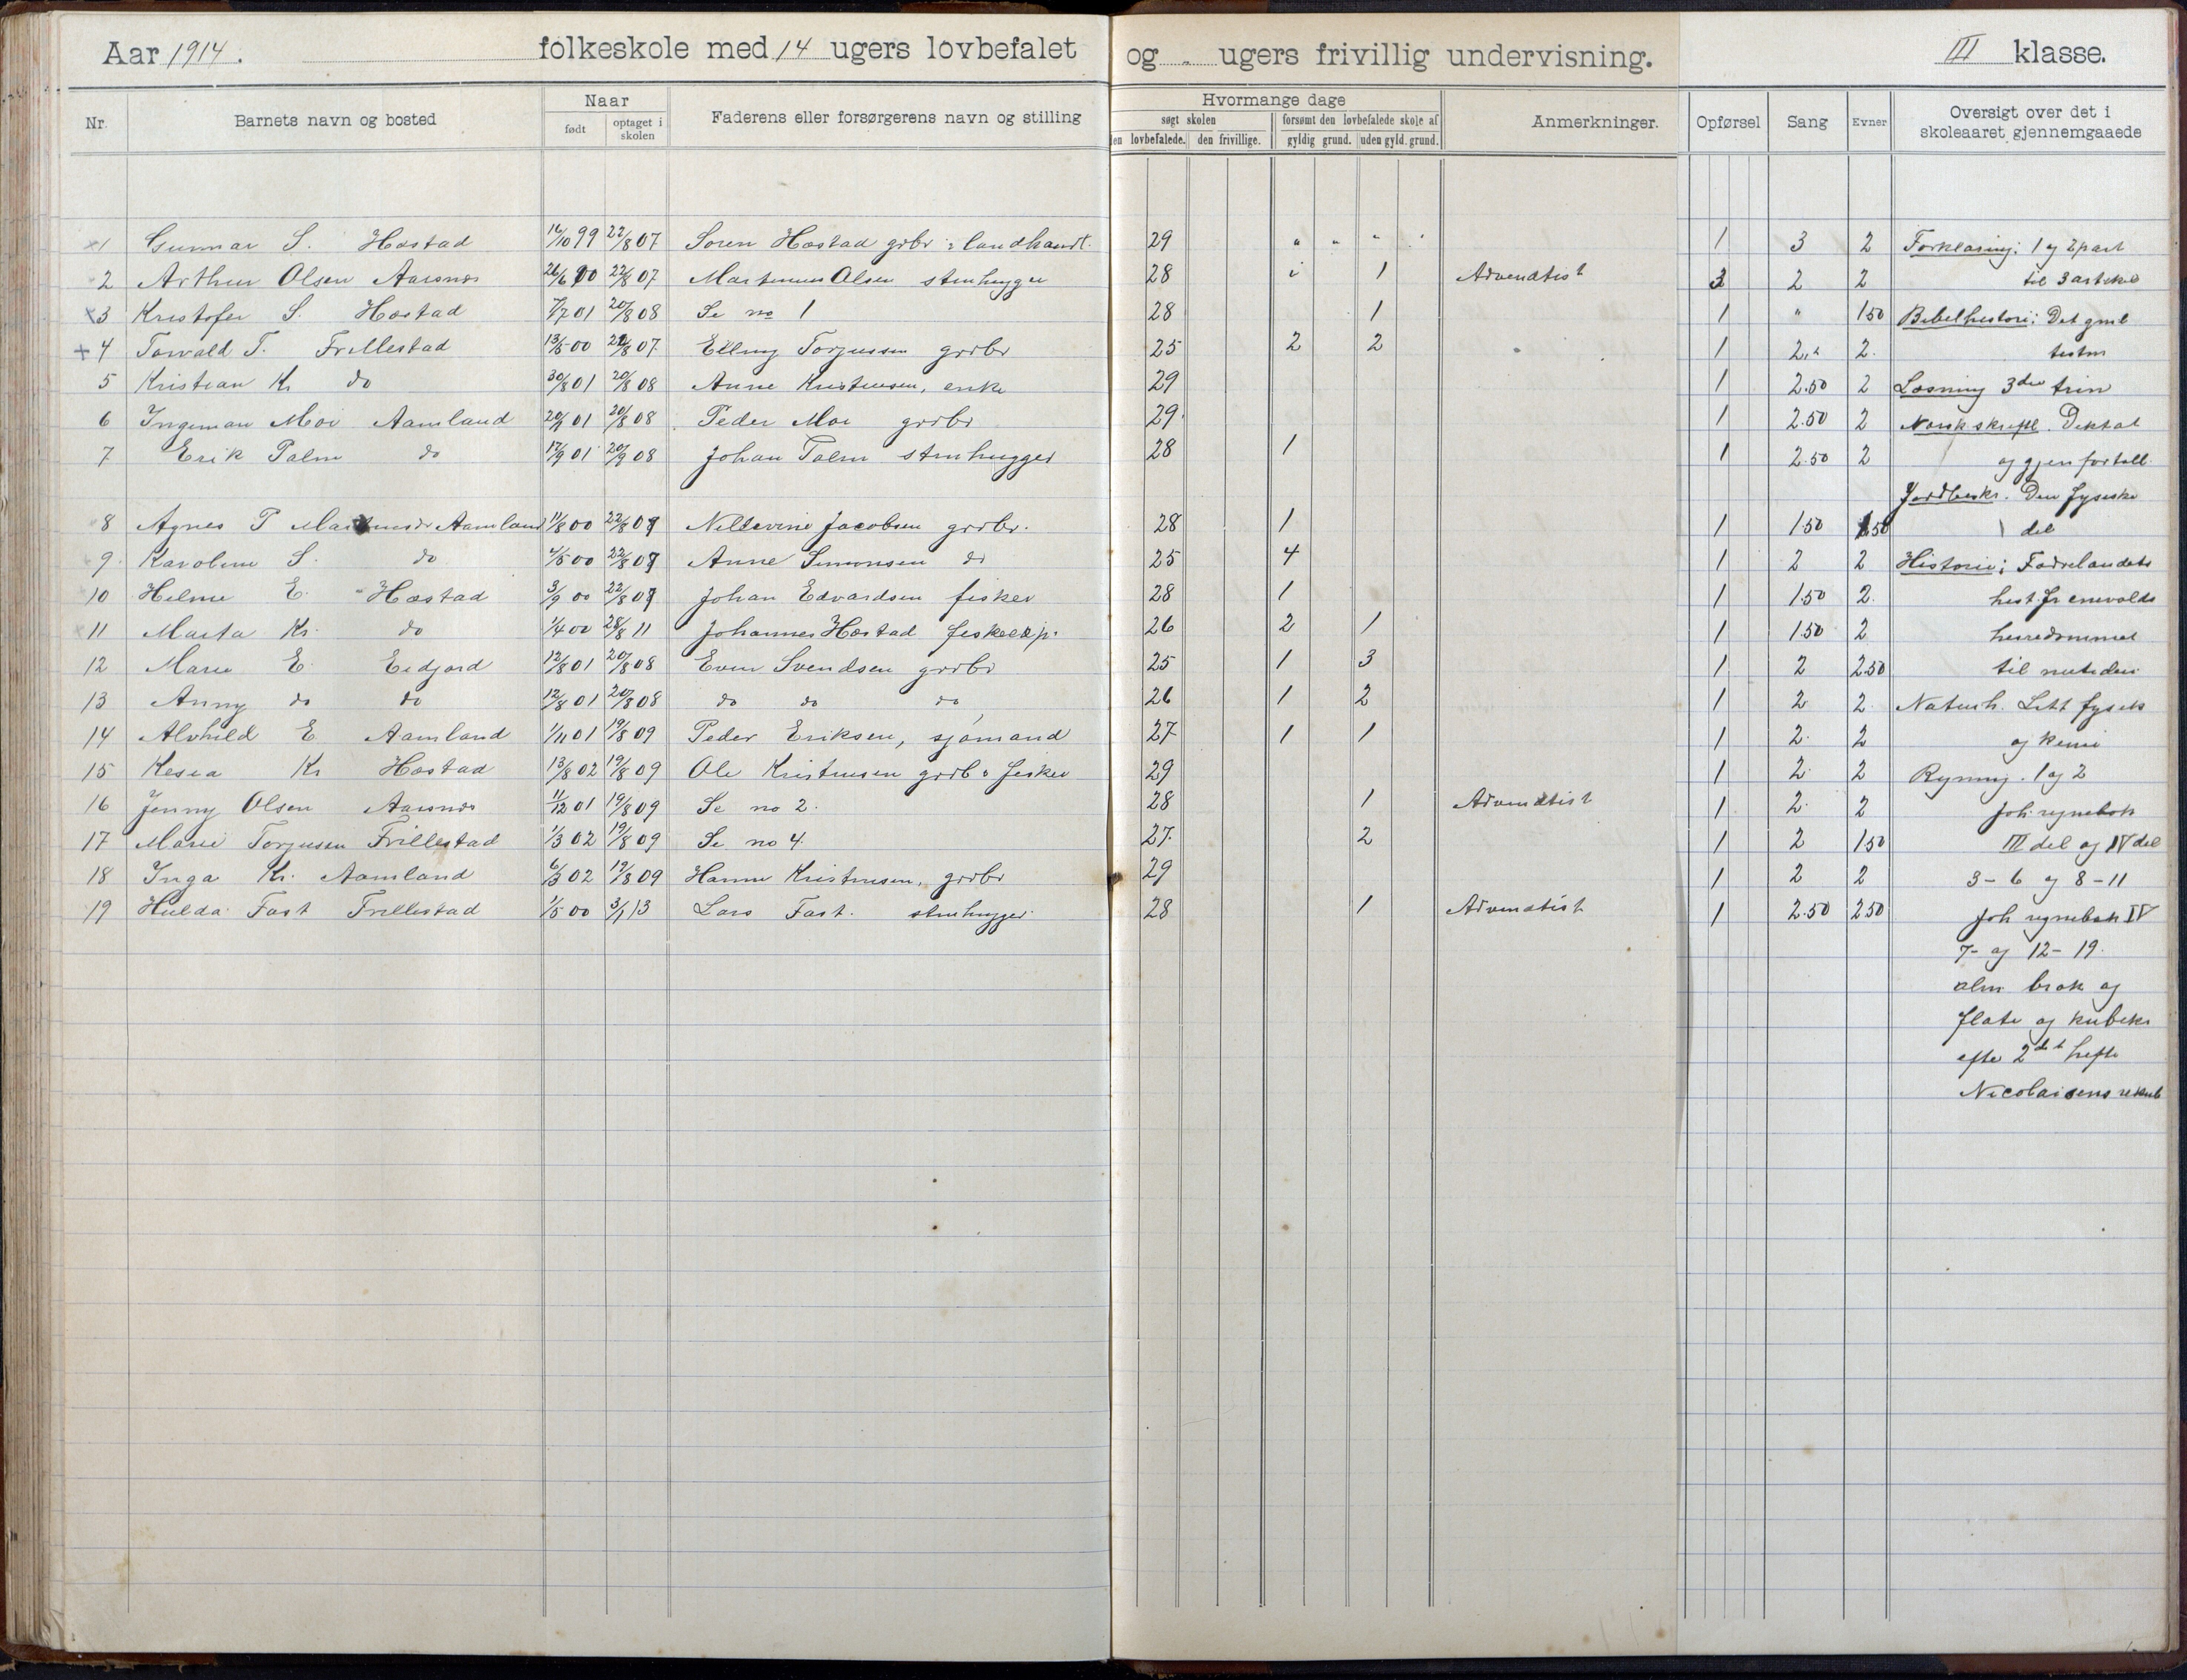 Aar 1914. folkeskole med 14 ugers lovbefalet og „ ugers frivillig undervisning. III klasse.
Nr. Barnets navn og bosted Naar født optaget i skolen Faderens eller forsørgerens navn og stilling Hvormange dage søgt skolen den lovbefalede. den frivillige. forsømt den lovbefalede skole af gyldig grund. uden gyld. grund. Anmerkninger. Opførsel Sang Evner Oversigt over det i skoleaaret gjennemgaaede
×1 Gunnar S. Hæstad 16/10 99 22/8 07 Søren Hæstad grbr & landhandl. 29 „ „ „ „ 1 3 2 Forklaring: 1 og 2 part
2 Arthur Olsen Aarsnes 26/6 00 22/8 07 Martinus Olsen stenhugger 28 1 Advendtist 3 2 2 til 3 artikel
×3 Kristofer S. Hæstad 7/7 01 20/8 08 Se no 1 28 1 1 „ 1.50 Bibelhistorie: Det gml
+4 Torvald T. Frillestad 13/5 00 22/8 07 Elling Torjussen grbr 25 2 2 1 2 2. testm
5 Kristian Kr do 30/8 01 20/8 08 Anne Kristensen, enke 29 1 2.50 2 Læsning 3die trin
6 Ingeman Moi Aamland 20/9 01 20/8 08 Peder Moe grbr 29 1 2.50 2 Norsk skriftl. Diktat
7 Erik Palm do 17/9 01 20/9 08 Johan Palm stenhugger 28 1 1 2.50 2 og gjenfortell.
Jordbeskr. Den fysiske
8 Agnes P Aamland 11/8 00 22/8 07 Jacobsen grbr. 28 1 1 1.50 1.50 del
9 Karoline S. do 4/5 00 22/8 07 Anne Simonsen do 25 4 1 2 2 Historie: Fædrelandets
10 Helene E. Hæstad 3/9 00 22/8 07 Johan Edvardsen fisker 28 1 1 1.50 2. hist. fr enevolds
11 Marta Kr. do 1/4 00 28/8 11 Johannes Hæstad fiskeexp. 26 2 1 1 1.50 2 herredømmet
12 Marie E. Eidjord 12/8 01 20/8 08 Even Svendsen grbr 25 1 3 1 2 2.50 til nutiden
13 Anny do do 12/8 01 20/8 08 do do do 26 1 2 1 2 2 Naturh. Litt fysik
14 Alvhild E Aamland 1/11 01 19/8 09 Peder Eriksen, sjømand 27 1 1 1 2. 2 og kemi
15 Kesia Kr Hæstad 13/8 02 19/8 09 Ole Kristensen grbr & fisker 29 1 2 2 Regning. 1 og 2
16 Jenny Olsen Aarsnes 11/12 01 19/8 09 Se no 2. 28 1 Advendtist 1 2. 2 Joh. regnebok
17 Marie Torjusen Frillestad 1/3 02 19/8 09 Se no 4. 27. 2 1 2 1.50 III del og IV del
18 Inga Kr. Aamland 6/3 02 19/8 09 Hanne Kristensen, grbr 29 1 2 2 3-6 og 8-11
19 Hulda Fast Frillestad 1/5 00 3/1 13 Lars Fast. stenhugger 28 1 Advendtist 1 2.50 2.50 Joh regnebok IV
7- og 12-19.
alm brøk og
flate og kubikr
efter 2det hefte
Nicolaisens